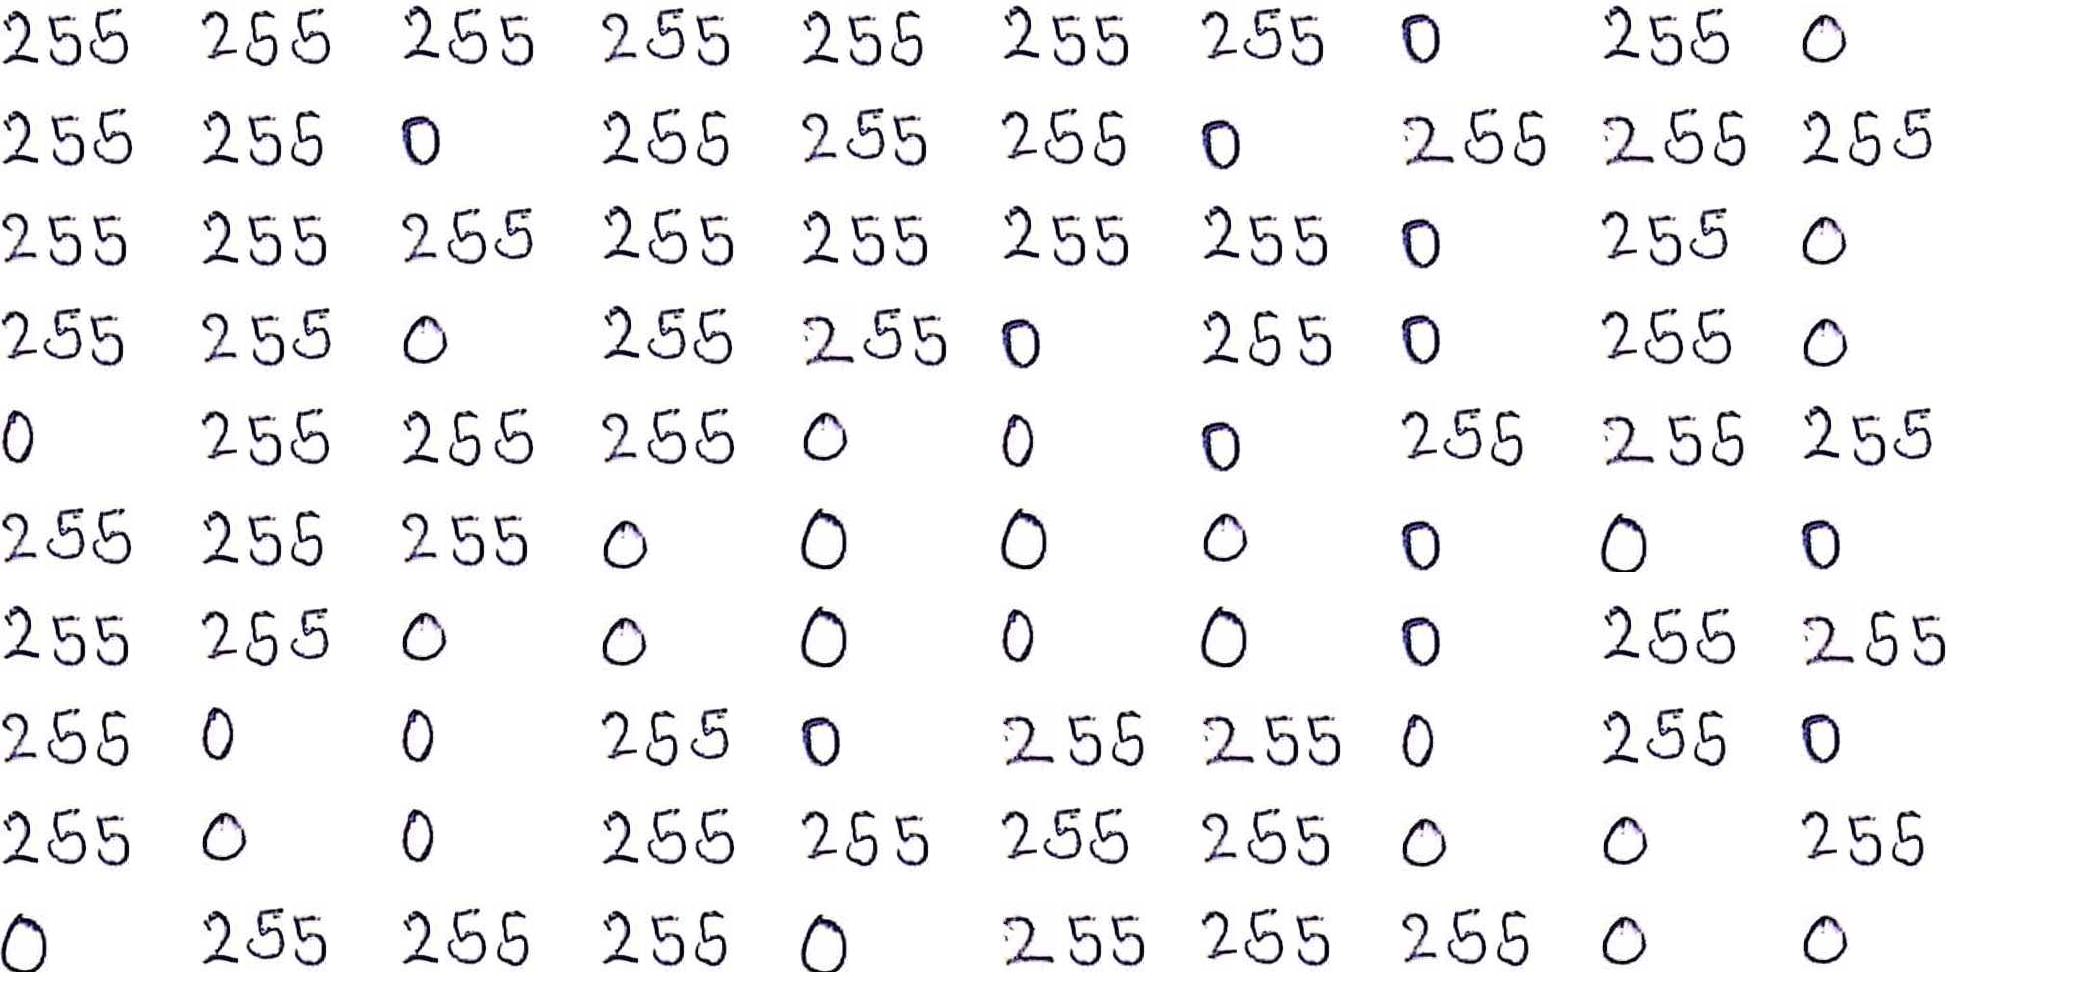 255 255 255 255 255 255 255 0 255 0
255 255 0 255 255 255 0 255 255 255
255 255 255 255 255 255 255 0 255 0
255 255 0 255 255 0 255 0 255 0
0 255 255 255 0 0 0 255 255 255
255 255 255 0 0 0 0 0 0 0
255 255 0 0 0 0 0 0 255 255
255 0 0 255 0 255 255 0 255 0
255 0 0 255 255 255 255 0 0 255
0 255 255 255 0 255 255 255 0 0